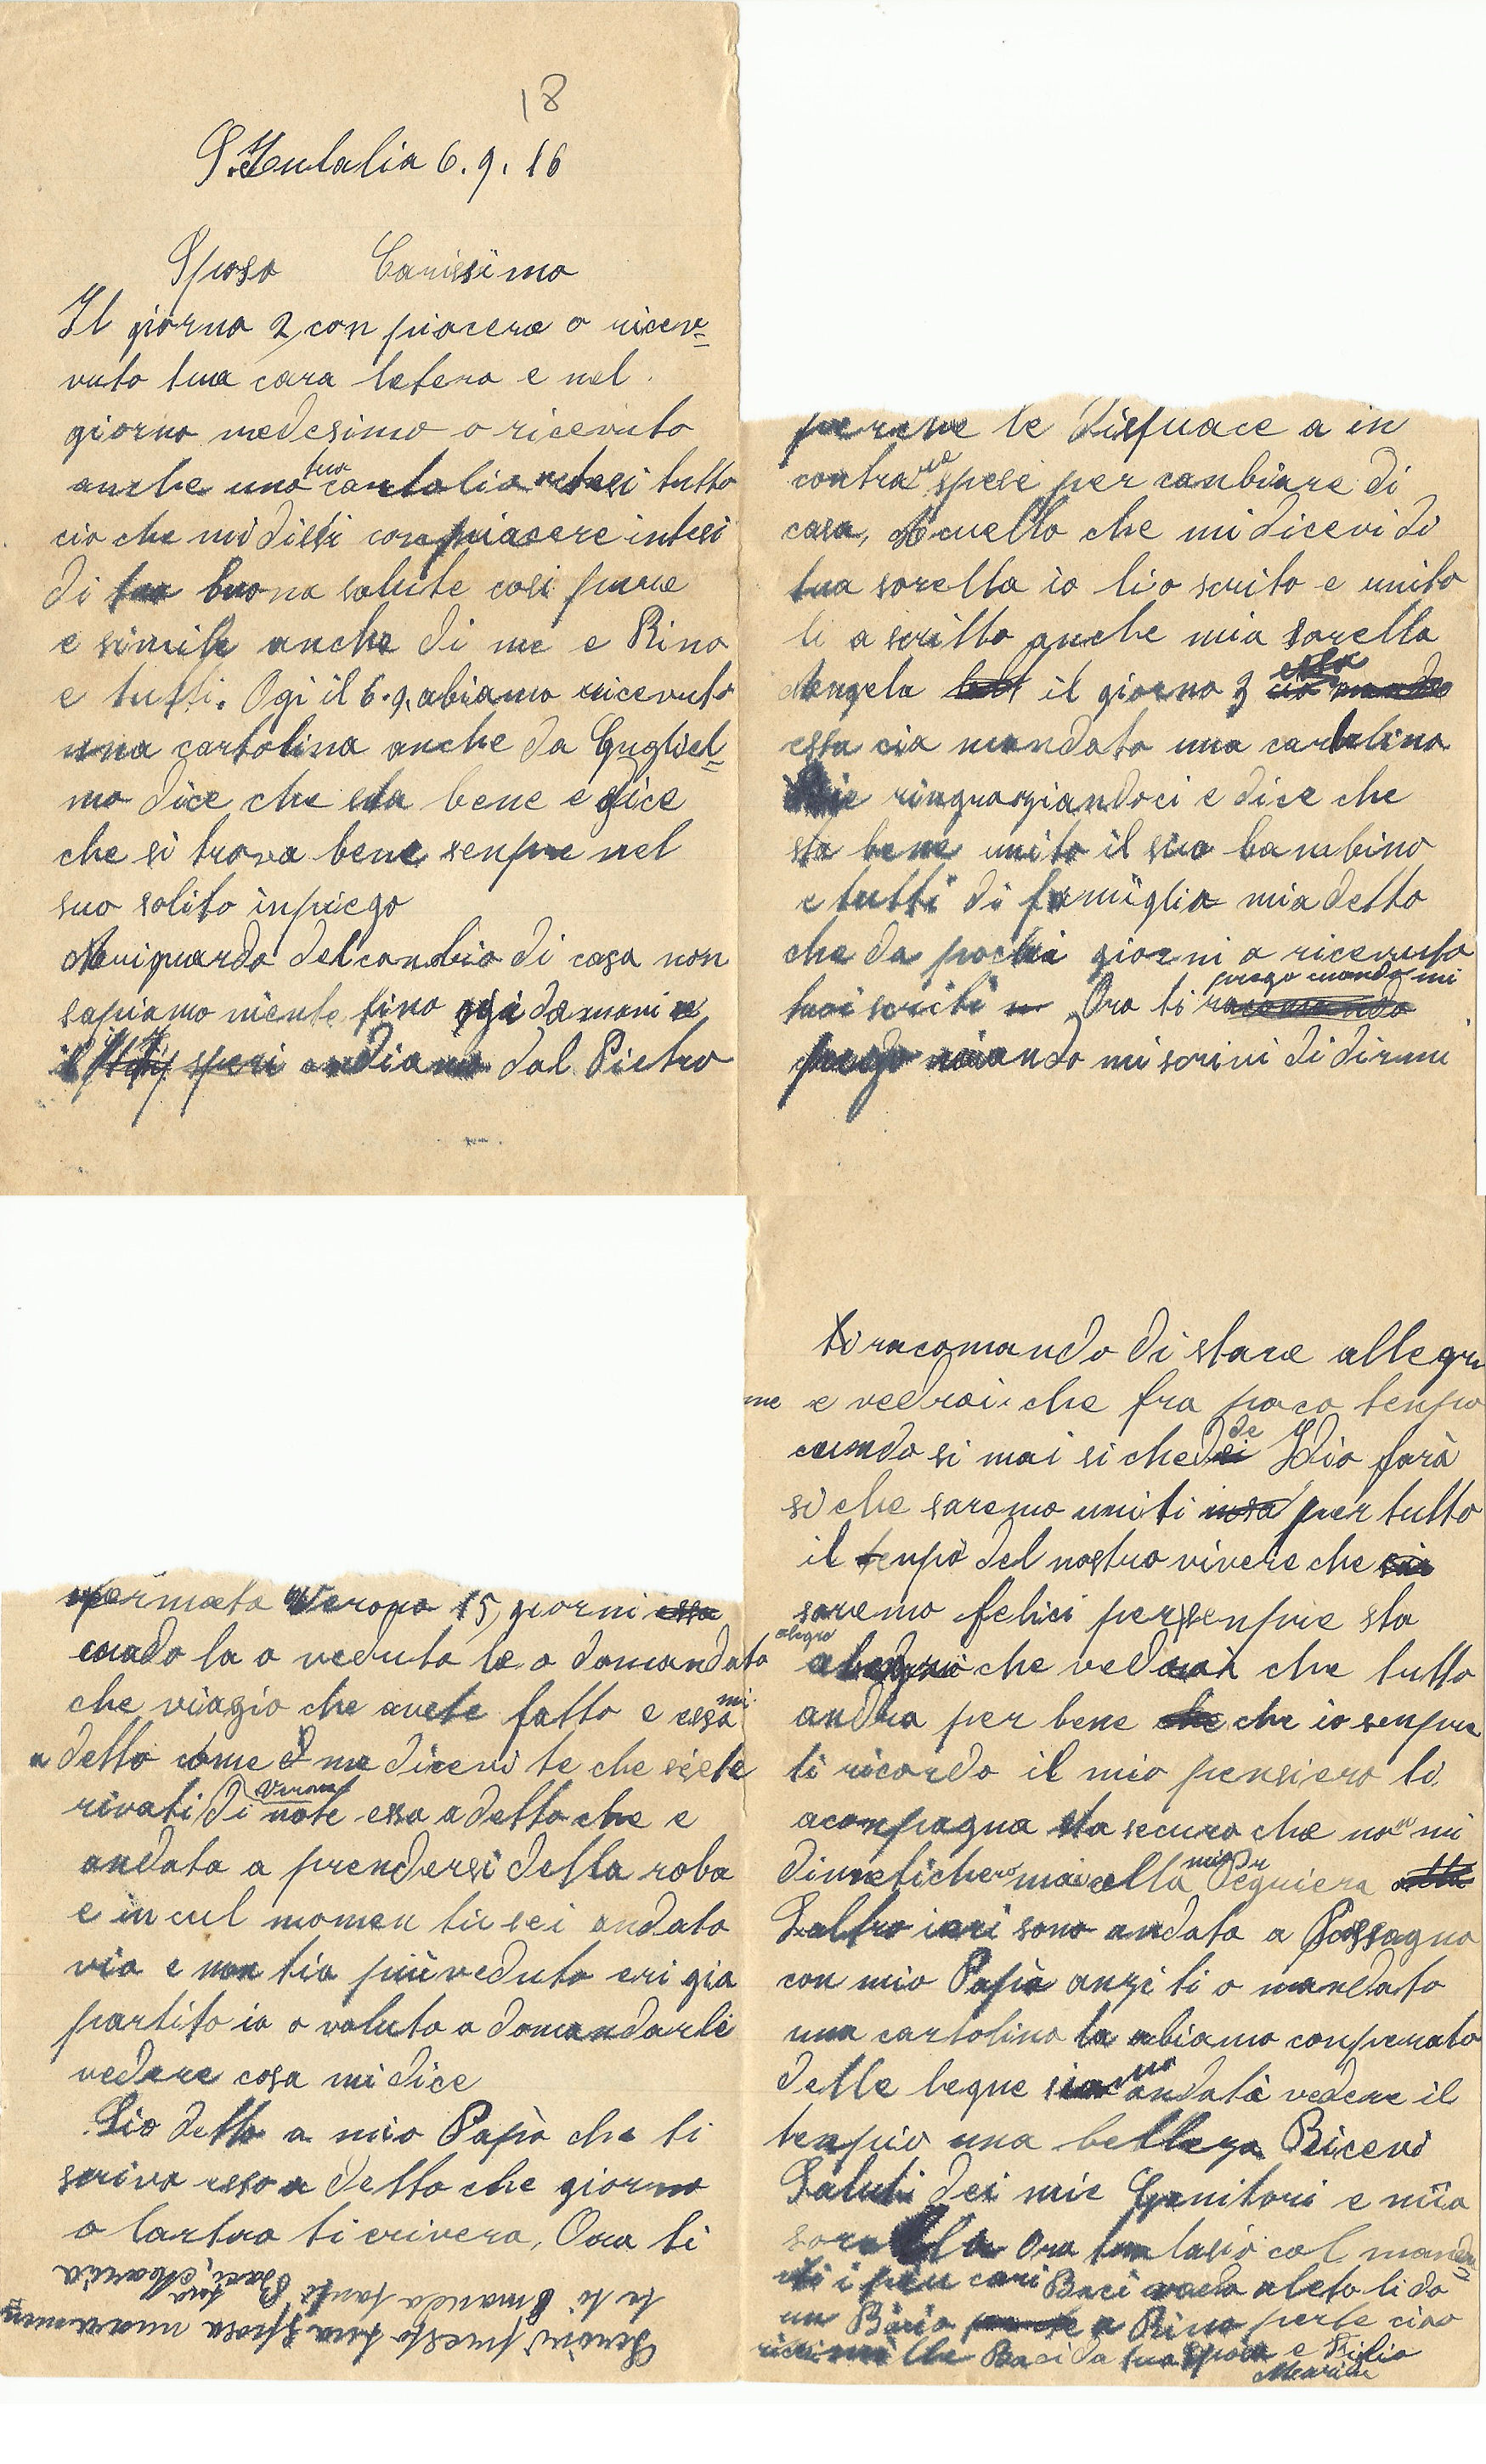 18
S. Eulalia 6. 9. 16
Sposo Carissimo
Il giorno 2, con piacere o ricev=
vuto tua cara letera e nel
giorno medesimo o ricevuto
anche una tua cartolia intesi tutto
cio che mi dissi con piacere intesi
di tua buona salute così pure
e simile anche di me e Rino
e tutti. Ogi il 6.9, abiamo ricevuto
una cartolina anche da Gugliel=
mo dice che sta bene e dice
che si trova bene senpre nel
suo solito inpiego
Ariguardo del canbio di casa non
sapiamo niente fino ogi damani e
speri andiamo dal Pietro
perche le dispiace a in
contrare spese per canbiare di
casa, A cuello che mi dicevi di
tua sorella io lio scrito e unito
li a scritto anche mia sorella
Angela il giorno 3 essa
essa cia mandato una cartolina
ringraziandoci e dice che
sta bene unito il suo bambino
e tutti di famiglia mia detto
che da pochi giorni a ricevuto
tuoi scriti Ora ti prego cuando mi
prego cuando mi scrivi di dirmi
fermata Verona 15, giorni essa
cuado la o veduta le o domandato
che viagio che avete fatto e essa mi
a detto come di me dicevi te che siete
rivati di Verona note essa a detto che e
andata a prendersi della roba
e in cul momen tu sei andato
via e non tia più veduto eri gia
partito io o voluto a domandarle
vedere cosa mi dice
Lio detto a mio Papà che ti
scriva esso a detto che giorno
o lartro ti scrivera, Ora ti
Scrivi presto tua Sposa nuovamen=
te ti manda tanti
tua Baci, Maria
ti racomando di stare allegro
e vedrai che fra poco tenpo
cuando si mai si chede Idio farà
si che saremo uniti per tutto
il tenpo del nostro vivere che
saremo felici per senpre sta
alegro che vedrai che tutto
andra per bene che che io senpre
ti ricordo il mio pensiero ti
aconpagna sta securo che non mi
dimetichero mai ella Peguiera
Laltro ieri sono andata a Possagno
con mio Papà anzi ti o mandato
una cartolina la abiamo conperato
delle legne siamo andati vedere il
tenpio una belleza Ricevi
Saluti dei mie Genitori e mia
sorella Ora tun lasio col mandar
ti i più cari Baci vado aleto li do
un Bacio a Rino perte ciao
ricevi mille Baci da tua Sposa e Figlio
Maria